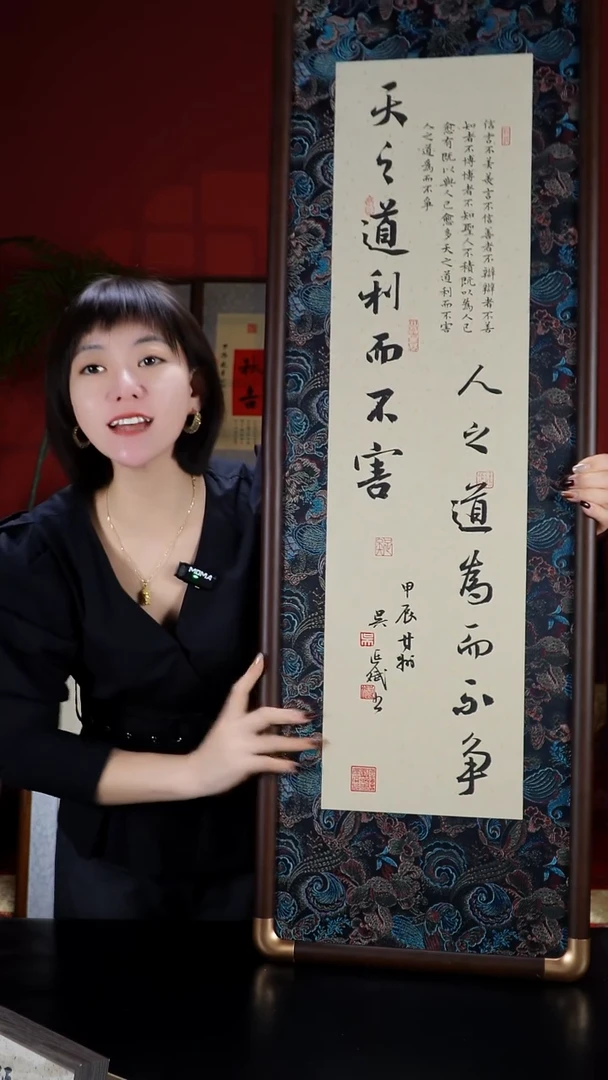 信言不美美言不信善者不辯辯者不善
知者不博博者不知聖人不積既以為人己
愈有既以與人己愈多天之道利而不害
人之道為而不争
天之道利而不害
人之道為而不争
甲辰
吴延斌书
MOMA